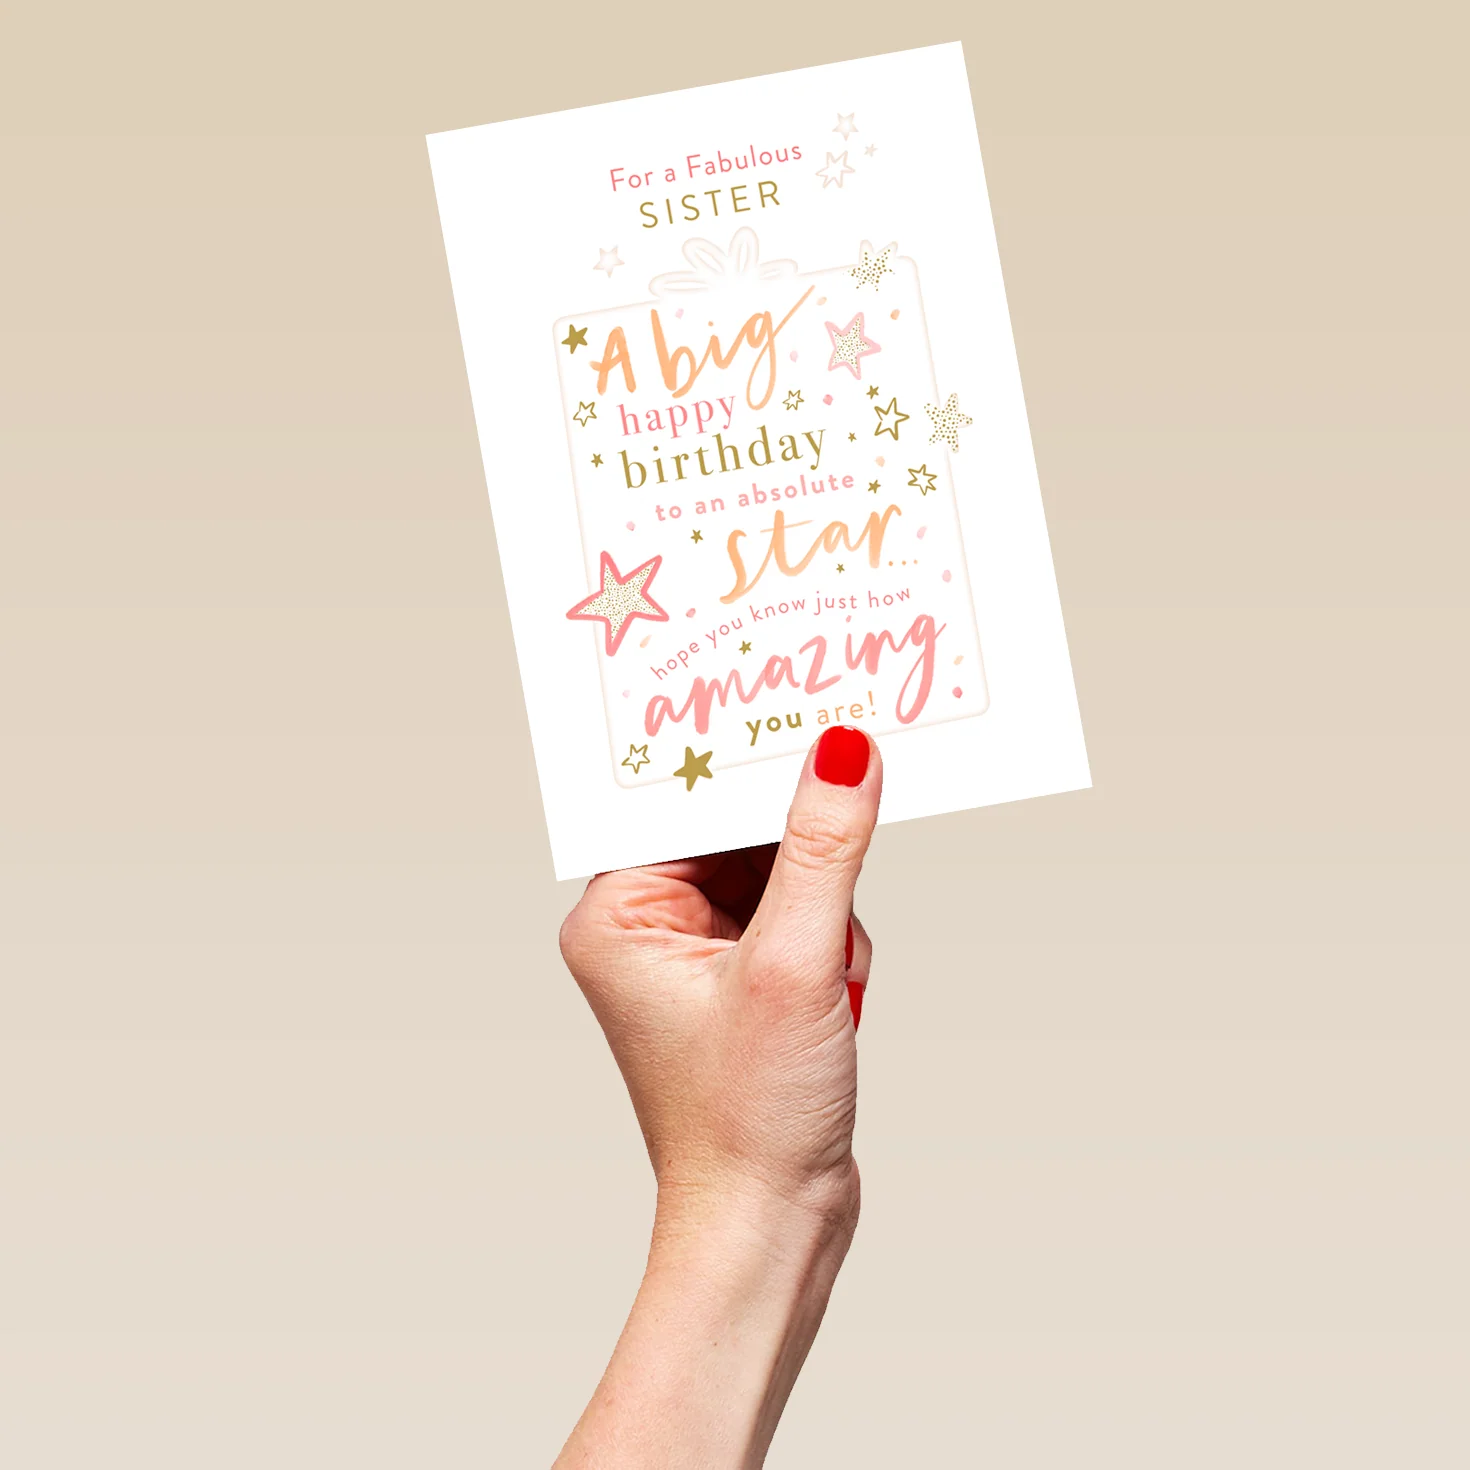 For a Fabulous
SISTER
A big
happy
birthday
to an absolute
star...
hope you know just how
amazing
you are!